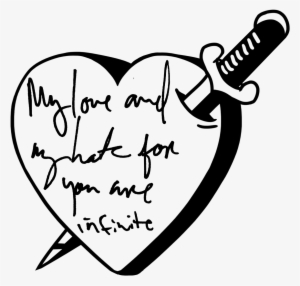 My love and
my hate for
you are
infinite